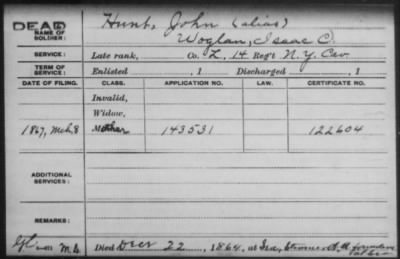 DEAD
NAME OF SOLDIER:
Hunt, John (alias)
Woglan, Isaac C.
SERVICE:
Late rank, Co. L, 14 Reg't N.Y. Cav
TERM OF SERVICE:
Enlisted , 1 Discharged , 1
DATE OF FILING. CLASS. APPLICATION NO. LAW. CERTIFICATE NO.
Invalid,
Widow,
1867, Mch. 8 Mother 143531 122604
ADDITIONAL SERVICES:
REMARKS:
Died Decr 22, 1864, at